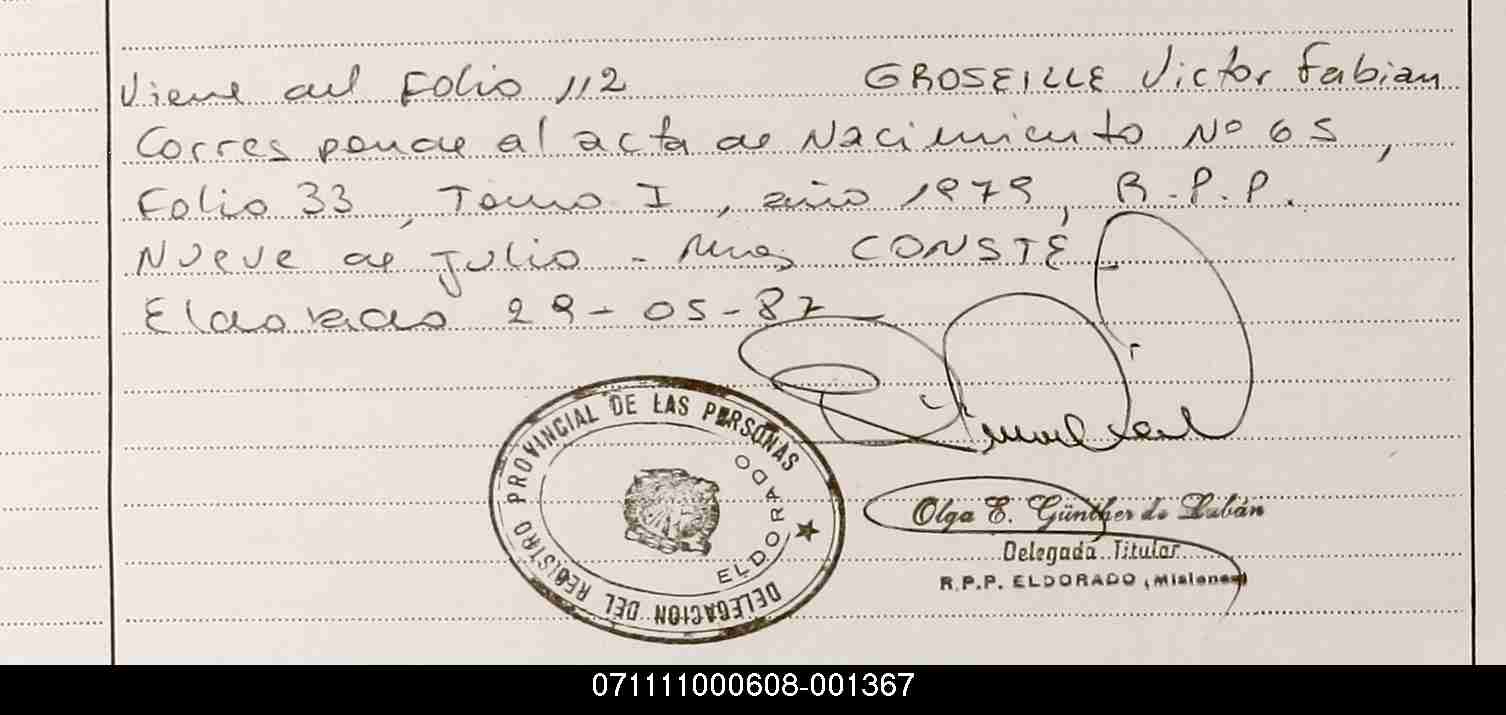 Viene del Folio 112 GROSEILLE Victor Fabian
Corresponde al acta de Nacimiento Nº 65,
Folio 33, Tomo I, año 1979, R.P.P.
Nueve de Julio - Mnes CONSTE -
Eldorado 29-05-87
DELEGACION DEL REGISTRO PROVINCIAL DE LAS PERSONAS
ELDORADO
Olga E. Günther de Lubán
Delegada Titular
R.P.P. ELDORADO (Misiones)
071111000608-001367